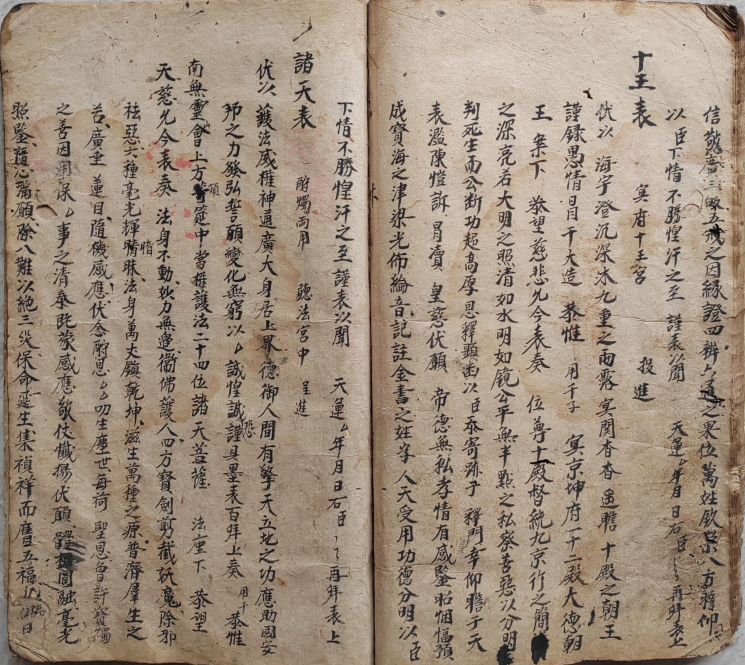 信敬廣三畈五戒之因緣證四辨六通之果位萬姓欽崇八方歸仰
以臣下情不勝惶汗之至 謹表以聞 天運厶年月日石臣 再拜表上
十王表 冥府十王宮 投進
伏以 海宇澄沉深沐九重之雨露 冥關杳杳 遙瞻 十殿之朝王
謹録愚情冒干大造 恭惟 用千子 冥京坤府一十二殿大德朝
王 案下 恭望慈悲允今表奏 位尊十殿督統九京行之簡
之深亮若大明之照清如水明如鏡公平無半點之私察善惡以分明
判死生而公断功超高厚恩釋顯幽以 臣忝寄跡子 釋門幸仰瞻于天
表濫陳愷訴 冒瀆 皇慈伏願 帝德無私孝情有感鑒昭個愊預
成寶海之津梁光佈綸音記註金書之姓字人天受用功德分明以臣
下情不勝惶汗之至謹表以聞 天運厶年月日石臣 再拜表上
諸天表 酧燭両用 聽法宮中 呈進
伏以 護法威權神通廣大身居上界德御人間有擎天立地之功應助國安
邦之力發弘誓願變化無窮以厶誠惶誠恐謹具墨表百拜上奏 用千 恭惟
南無靈會上方等筵中當權護法二十四位諸天菩薩 法座下 恭望
天慈允今表奏 法身不動妙力無邊衛佛護人四方寶劍剪截妖魔除邪
祛惡六種毫光輝騰暗昧法身萬丈鎮乾坤滋生萬種之源普濟羣生之
苦廣垂 蓮目隨機感應伏念酧恩厶叨生塵世每荷 聖恩曾許寶燭
之善因用保厶事之清泰既蒙感應敬伏懺揚伏願 體圓融毫光
照鑒隨心滿願除八難以絕三災保命延生集禎祥而膺五福 日